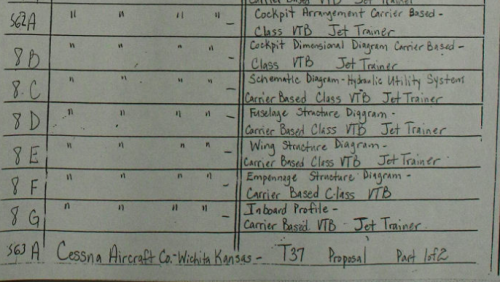 Carrier Based VTB Jet Trainer
562A " " " " - Cockpit Arrangement Carrier Based -
Class VTB Jet Trainer
8 B " " " " - Cockpit Dimensional Diagram Carrier Based -
Class VTB Jet Trainer
8 C " " " " - Schematic Diagram - Hydraulic Utility System
Carrier Based Class VTB Jet Trainer
8 D " " " " - Fuselage Structure Diagram -
Carrier Based Class VTB Jet Trainer
8 E " " " " - Wing Structure Diagram -
Carrier Based Class VTB Jet Trainer
8 F " " " " - Empennage Structure Diagram -
Carrier Based Class VTB
8 G " " " " - Inboard Profile -
Carrier Based VTB - Jet Trainer
563 A Cessna Aircraft Co. - Wichita Kansas - T37 Proposal Part 1 of 2